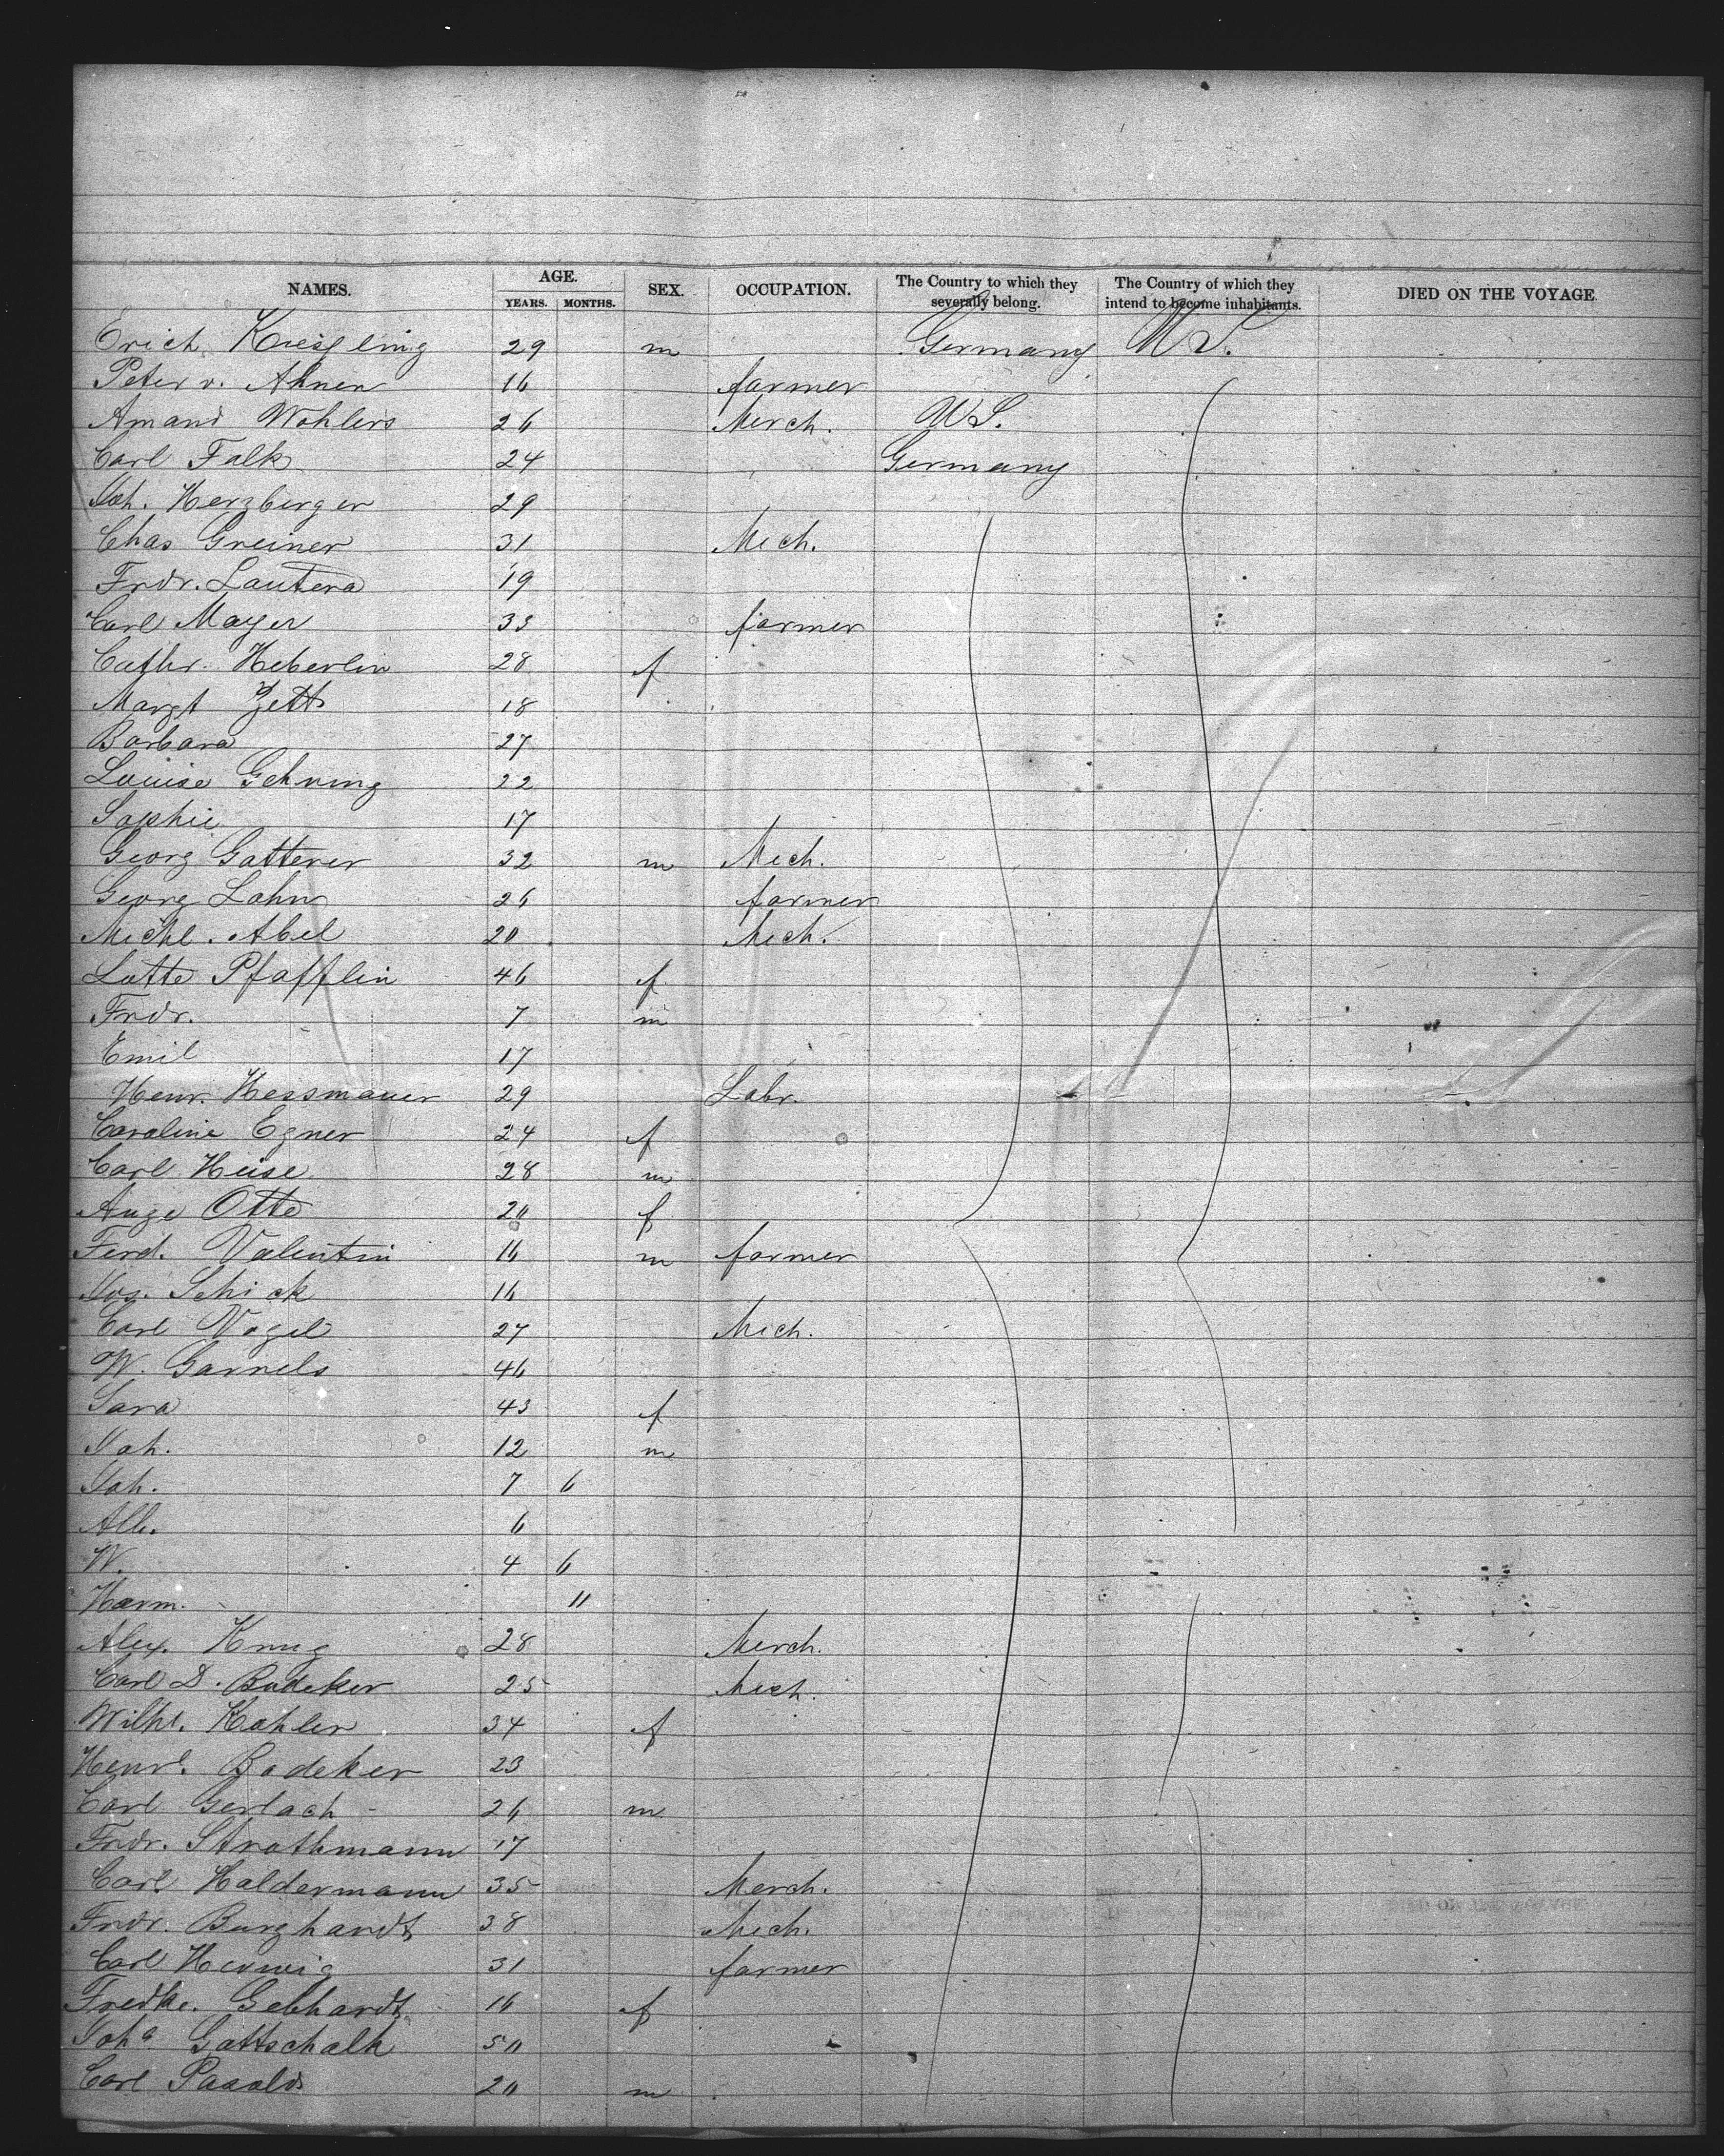 NAMES. AGE. SEX. OCCUPATION. The Country to which they severally belong. The Country of which they intend to become inhabitants. DIED ON THE VOYAGE.
YEARS. MONTHS.
Erich Kiesgling 29 m Germany U.S.
Peter v. Ahnen 16 farmer
Amand Wohlers 26 Merch. U.S.
Carl Falk 24 Germany
Joh. Herzberger 29
Chas Greiner 31 Mech.
Frdr. Lautera 19
Carl Mayer 33 farmer
Cathr. Heberlin 28 f
Margt Zett 18
Barbara 27
Louise Gehring 22
Sophie 17
Georg Gatterer 32 m Mech.
Georg Lahn 26 farmer
Michl. Abel 20 Mech.
Lotte Pfafflin 46 f
Frdr. 7 m
Emil 17
Henr. Hessmauer 29 Labr.
Caroline Egner 24 f
Carl Heise 28 m
Auge Otte 20 f
Ferd. Valentin 16 m farmer
Jos. Schick 16
Carl Vogel 27 Mech.
W. Garrels 46
Sara 43 f
Joh. 12 m
Joh. 7 6
Alb. 6
W. 4 6
Harm. 11
Alex. Krug 28 Merch.
Carl D. Budeker 25 Mech.
Wilhe. Kahler 34 f
Henre. Bodeker 23
Carl Gerlach 26 m
Frdr. Strathmann 17
Carl Haldermann 35 Merch.
Frdr. Burghardt 38 Mech.
Carl Herwig 31 farmer
Fredke. Gebhardt 16 f
Joha Gottschalk 50
Carl Paaold 20 m